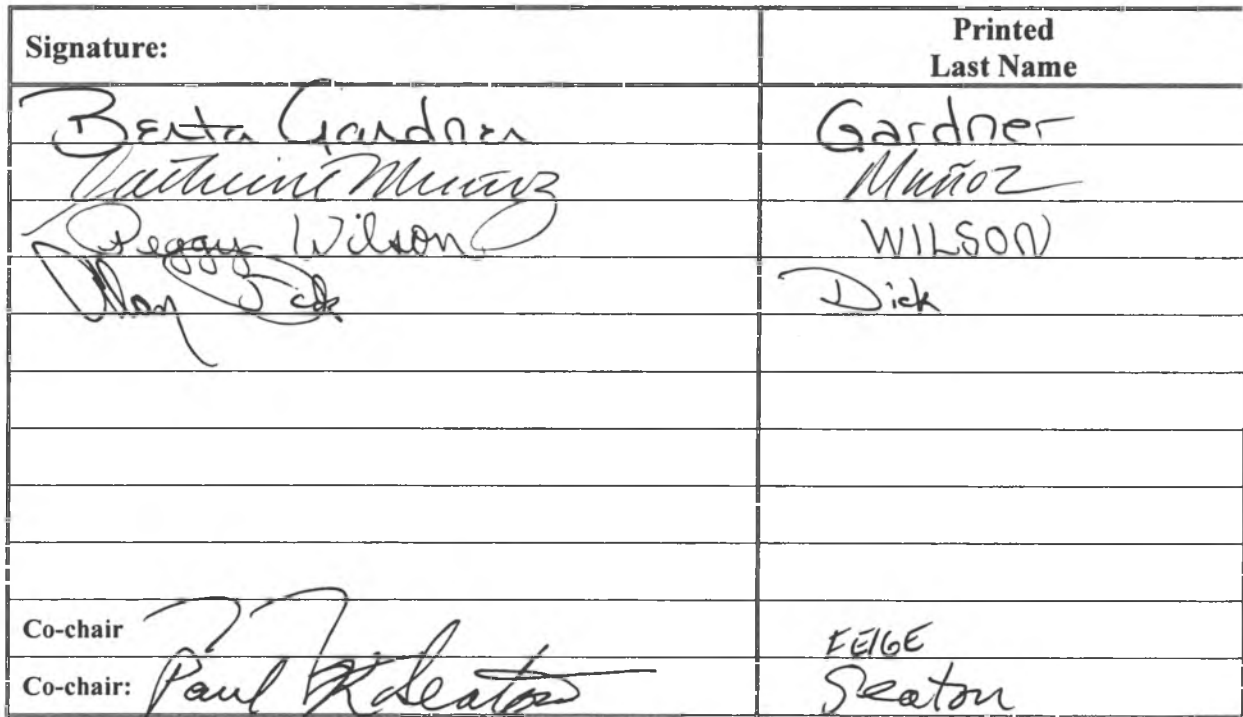 Signature: Printed
Last Name
Berta Gardner Gardner
Cathy Muñoz Muñoz
Peggy Wilson WILSON
Alan Dick Dick
Co-chair FEIGE
Co-chair: Paul K Seaton Seaton